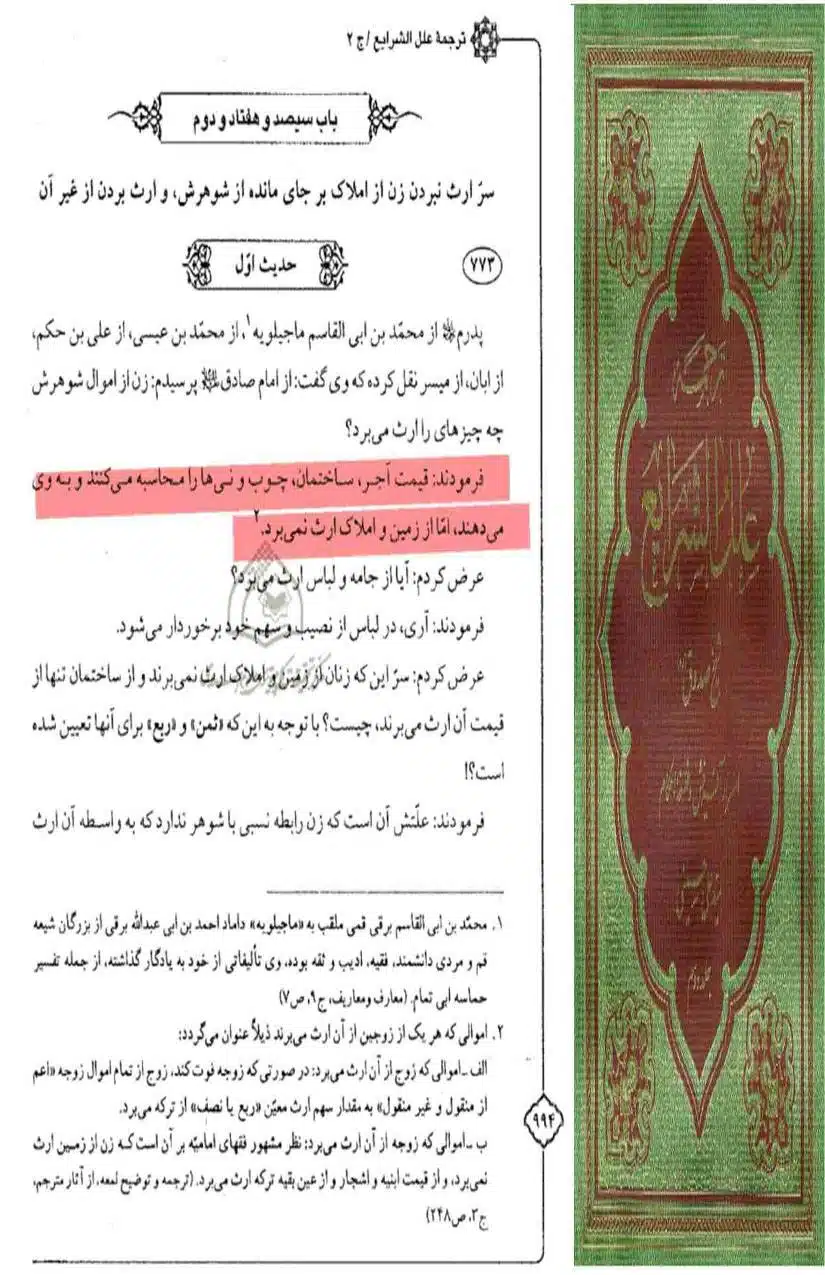 ترجمهٔ علل الشرایع / ج ۲
باب سیصد و هفتاد و دوم
سرّ ارث نبردن زن از املاک بر جای مانده از شوهرش، و ارث بردن از غیر آن
۷۷۳
حدیث اوّل
پدرم از محمّد بن ابی القاسم ماجیلویه۱، از محمّد بن عیسی، از علی بن حکم،
از ابان، از میسر نقل کرده که وی گفت: از امام صادق پرسیدم: زن از اموال شوهرش
چه چیزهای را ارث می‌برد؟
فرمودند: قیمت آجر، ساختمان، چوب و نی‌ها را محاسبه می‌کنند و به وی
می‌دهند، امّا از زمین و املاک ارث نمی‌برد.۲
عرض کردم: آیا از جامه و لباس ارث می‌برد؟
فرمودند: آری، در لباس از نصیب و سهم خود برخوردار می‌شود.
عرض کردم: سرّ این که زنان از زمین و املاک ارث نمی‌برند و از ساختمان تنها از
قیمت آن ارث می‌برند، چیست؟ با توجه به این که «ثمن» و «ربع» برای آنها تعیین شده
است؟!
فرمودند: علّتش آن است که زن رابطه نسبی با شوهر ندارد که به واسطه آن ارث
۱. محمّد بن ابی القاسم برقی قمی ملقب به «ماجیلویه» داماد احمد بن ابی عبدالله برقی از بزرگان شیعه
قم و مردی دانشمند، فقیه، ادیب و ثقه بوده، وی تألیفاتی از خود به یادگار گذاشته، از جمله تفسیر
حماسه ابی تمام. (معارف ومعاریف، ج۹، ص۷)
۲. اموالی که هر یک از زوجین از آن ارث می‌برند ذیلاً عنوان می‌گردد:
الف ـ اموالی که زوج از آن ارث می‌برد: در صورتی که زوجه فوت کند، زوج از تمام اموال زوجه «اعم
از منقول و غیر منقول» به مقدار سهم ارث معیّن «ربع یا نصف» از ترکه می‌برد.
ب ـ اموالی که زوجه از آن ارث می‌برد: نظر مشهور فقهای امامیّه بر آن است که زن از زمین ارث
نمی‌برد، و از قیمت ابنیه و اشجار و از عین بقیه ترکه ارث می‌برد. (ترجمه و توضیح لمعه، از آثار مترجم،
ج۳، ص۲۴۸)
۹۹۴
ترجمه
علل الشرایع
شیخ صدوق
جلد دوم